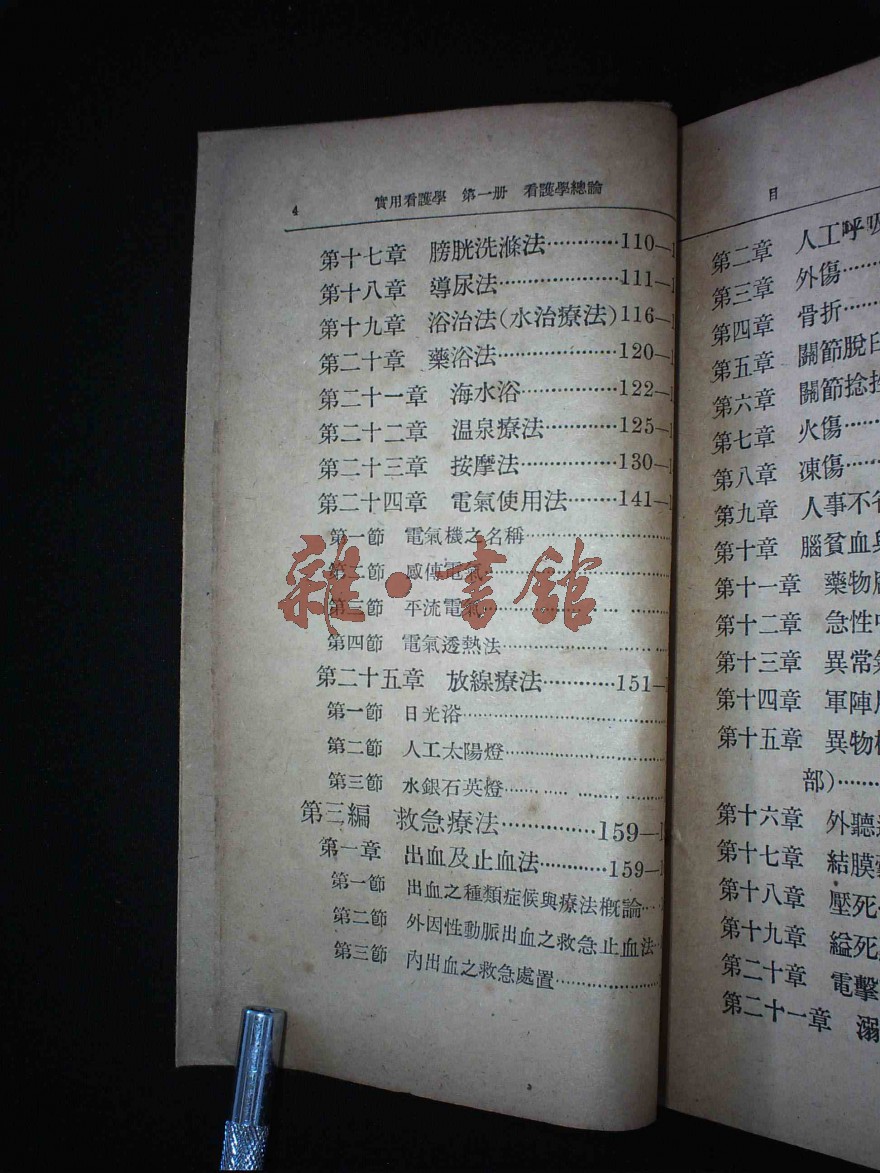 4 實用看護學 第一册 看護學總論
第十七章 膀胱洗滌法…………110—1
第十八章 導尿法………………111—1
第十九章 浴治法(水治療法)116—1
第二十章 藥浴法………………120—1
第二十一章 海水浴……………122—1
第二十二章 温泉療法…………125—1
第二十三章 按摩法……………130—1
第二十四章 電氣使用法………141—1
第一節 電氣機之名稱……………………
第二節 感傳電氣…………………………
第三節 平流電氣…………………………
第四節 電氣透熱法………………………
第二十五章 放線療法…………151—1
第一節 日光浴……………………………
第二節 人工太陽燈………………………
第三節 水銀石英燈………………………
第三編 救急療法……………159—1
第一章 出血及止血法…………159—1
第一節 出血之種類症候與療法概論……
第二節 外因性動脈出血之救急止血法…
第三節 內出血之救急處置………………
雜·書館
目
第二章 人工呼吸
第三章 外傷……
第四章 骨折……
第五章 關節脫臼
第六章 關節捻挫
第七章 火傷……
第八章 凍傷……
第九章 人事不省
第十章 腦貧血與
第十一章 藥物
第十二章 急性中
第十三章 異常氣
第十四章 軍陣
第十五章 異物
部)……
第十六章 外聽道
第十七章 結膜
第十八章 壓死
第十九章 縊死
第二十章 電擊
第二十一章 溺